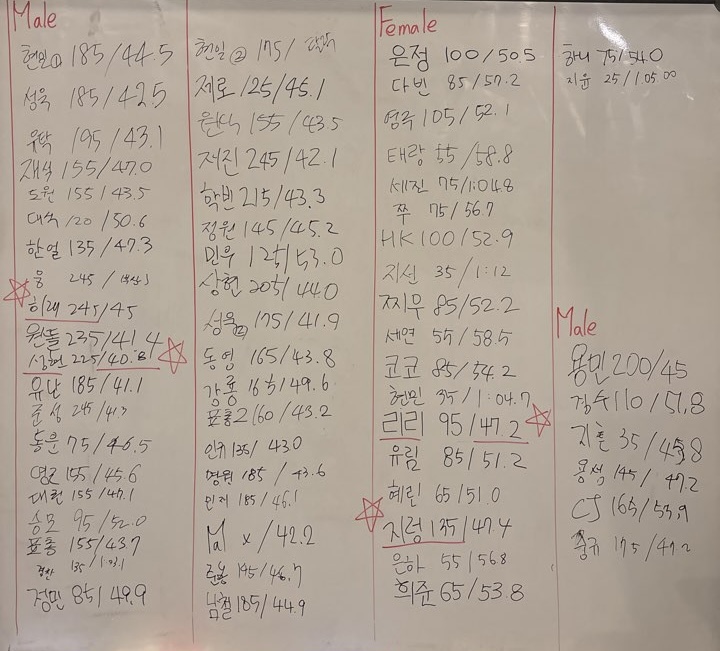 Male
현민① 185/44.5
성욱 185/42.5
우탁 195/43.1
재석 155/47.0
도원 155/43.5
대석 120/50.6
한얼 135/47.3
웅 245/
히래 245/45
원들 235/41.4
성현 225/40.8
유난 185/41.1
준성 245/41.3
동훈 75/46.5
영근 155/45.6
대현 155/47.1
승모 95/52.0
표총 155/43.7
135/1:03.1
정민 85/49.9
현일② 175/
제로 125/45.1
원식 155/43.5
저진 245/42.1
학빈 215/43.3
정원 145/45.2
민우 125/53.0
상현 205/44.0
성욱② 175/41.9
동영 165/43.8
강룡 165/49.6
표총2 160/43.2
인규 135/43.0
명원 185/43.6
민재 185/46.1
Mal x/42.2
준용 195/46.7
남철 185/44.9
Female
은정 100/50.5
다빈 85/57.2
영주 105/52.1
태랑 55/58.8
세진 75/1:04.8
쭈 75/56.7
HK 100/52.9
지선 35/1:12
찌우 85/52.2
세연 55/58.5
코코 85/54.2
현민 35/1:04.7
리리 95/47.2
유림 85/51.2
혜린 65/51.0
지렁 135/47.4
은하 55/56.8
희준 65/53.8
하니 75/54.0
지윤 25/1:05.00
Male
용민 200/45
경수 110/51.8
지훈 35/45.8
용성 145/47.2
CJ 165/53.9
중규 175/47.2